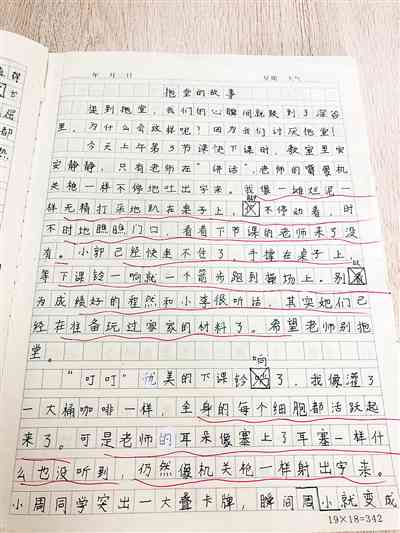 年 月 日 星期 天气
拖堂的故事
提到拖堂，我们的心瞬间就跌到了深谷
里，为什么会这样呢？因为我们讨厌拖堂！
今天上午第3节课快下课时，教室里安
安静静，只有老师在“讲话”，老师的嘴像机
关枪一样不停地吐出字来。我像一摊烂泥一
样无精打采地趴在桌子上，不停动着，时
不时地瞧瞧门口，看看下节课的老师来了没
有。小郭已经快坐不住了，手撑在桌子上，
等下课铃一响就一个箭步跑到操场上。别以
为成绩好的程然和小李很听话，其实她们已
经在准备玩过家家的材料了。希望老师别拖
堂。
“叮叮”优美的下课铃响了，我像灌了
一大桶咖啡一样，全身的每个细胞都活跃起
来了。可是老师的耳朵像塞上了耳塞一样什
么也没听到，仍然像机关枪一样射出字来。
小周同学突出一大叠卡牌，瞬间周小就变成
19×18=342